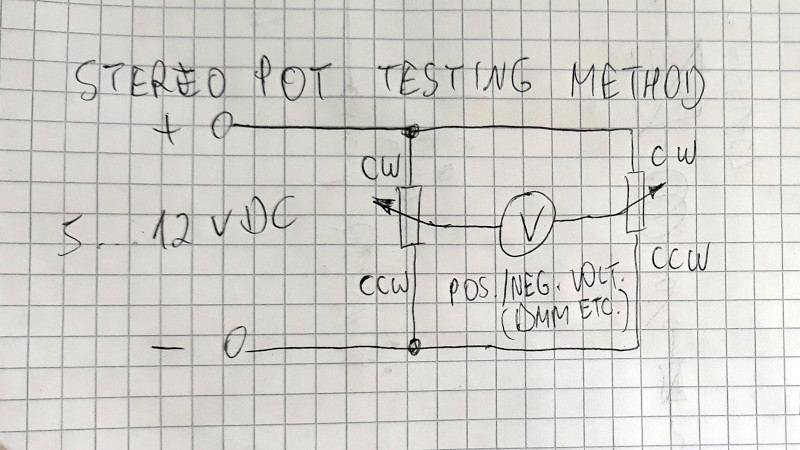 STEREO POT TESTING METHOD
+
CW
CW
5...12 VDC
V
CCW
CCW
POS./NEG. VOLT.
(DMM ETC.)
-